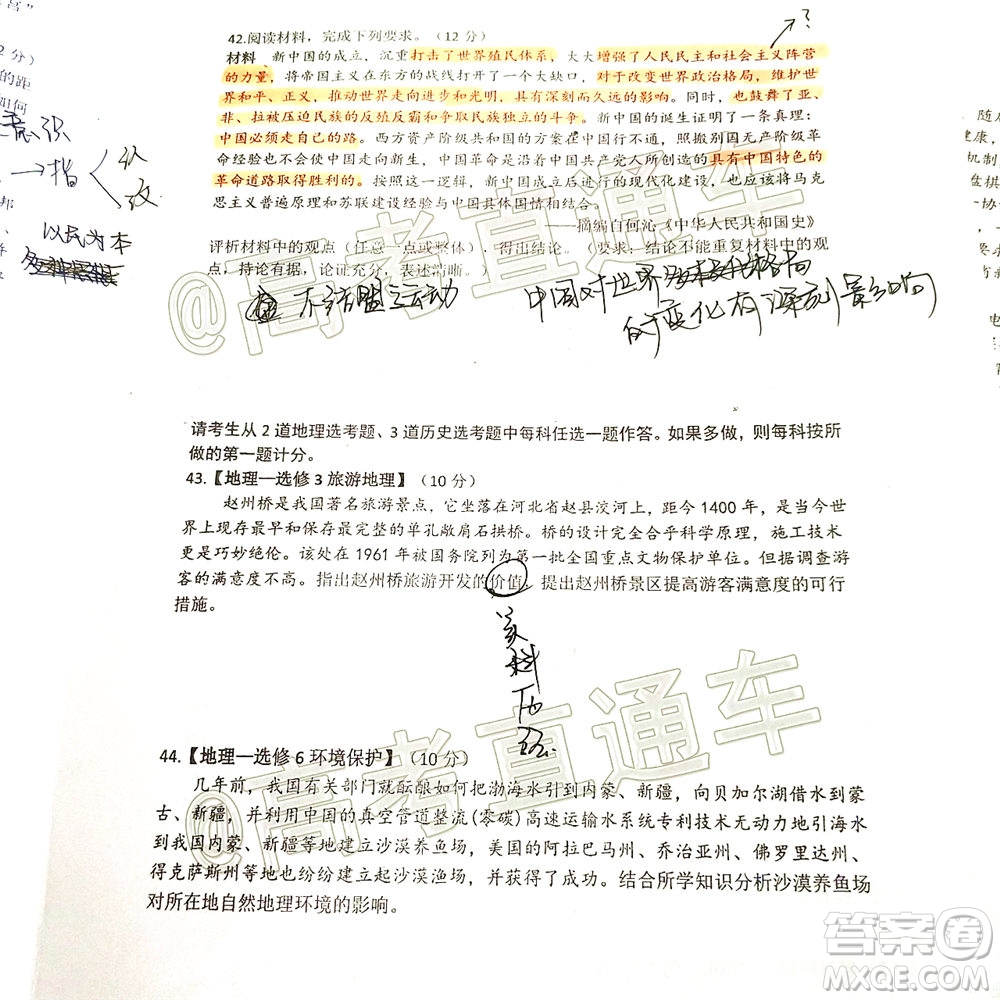 42.阅读材料，完成下列要求。（12 分）
材料 新中国的成立，沉重打击了世界殖民体系，大大增强了人民民主和社会主义阵营
的力量，将帝国主义在东方的战线打开了一个大缺口，对于改变世界政治格局，维护世
界和平、正义，推动世界走向进步和光明，具有深刻而久远的影响。同时，也鼓舞了亚、
非、拉被压迫民族的反殖反霸和争取民族独立的斗争。新中国的诞生证明了一条真理：
中国必须走自己的路。西方资产阶级共和国的方案在中国行不通，照搬别国无产阶级革
命经验也不会使中国走向新生，中国革命是沿着中国共产党人所创造的具有中国特色的
革命道路取得胜利的。按照这一逻辑，新中国成立后进行的现代化建设，也应该将马克
思主义普遍原理和苏联建设经验与中国具体国情相结合。
——摘编自何沁《中华人民共和国史》
评析材料中的观点（任意一点或整体），得出结论。（要求：结论不能重复材料中的观
点，持论有据，论证充分，表述清晰。）
不结盟运动
中国对世界
的变化有深刻影响
请考生从 2 道地理选考题、3 道历史选考题中每科任选一题作答。如果多做，则每科按所
做的第一题计分。
43.【地理—选修 3 旅游地理】（10 分）
赵州桥是我国著名旅游景点，它坐落在河北省赵县洨河上，距今 1400 年，是当今世
界上现存最早和保存最完整的单孔敞肩石拱桥。桥的设计完全合乎科学原理，施工技术
更是巧妙绝伦。该处在 1961 年被国务院列为第一批全国重点文物保护单位。但据调查游
客的满意度不高。指出赵州桥旅游开发的价值，提出赵州桥景区提高游客满意度的可行
措施。
美
科
历
经
44.【地理—选修 6 环境保护】（10 分）
几年前，我国有关部门就酝酿如何把渤海水引到内蒙、新疆，向贝加尔湖借水到蒙
古、新疆，并利用中国的真空管道整流(零碳)高速运输水系统专利技术无动力地引海水
到我国内蒙、新疆等地建立沙漠养鱼场，美国的阿拉巴马州、乔治亚州、佛罗里达州、
得克萨斯州等地也纷纷建起沙漠渔场，并获得了成功。结合所学知识分析沙漠养鱼场
对所在地自然地理环境的影响。
2 分）
的距
如何
意识
→指
邦
以民为本
随后
健康，
机制
盘棋
协
@高考直通车
@高考直通车
答案卷
MXQE.COM